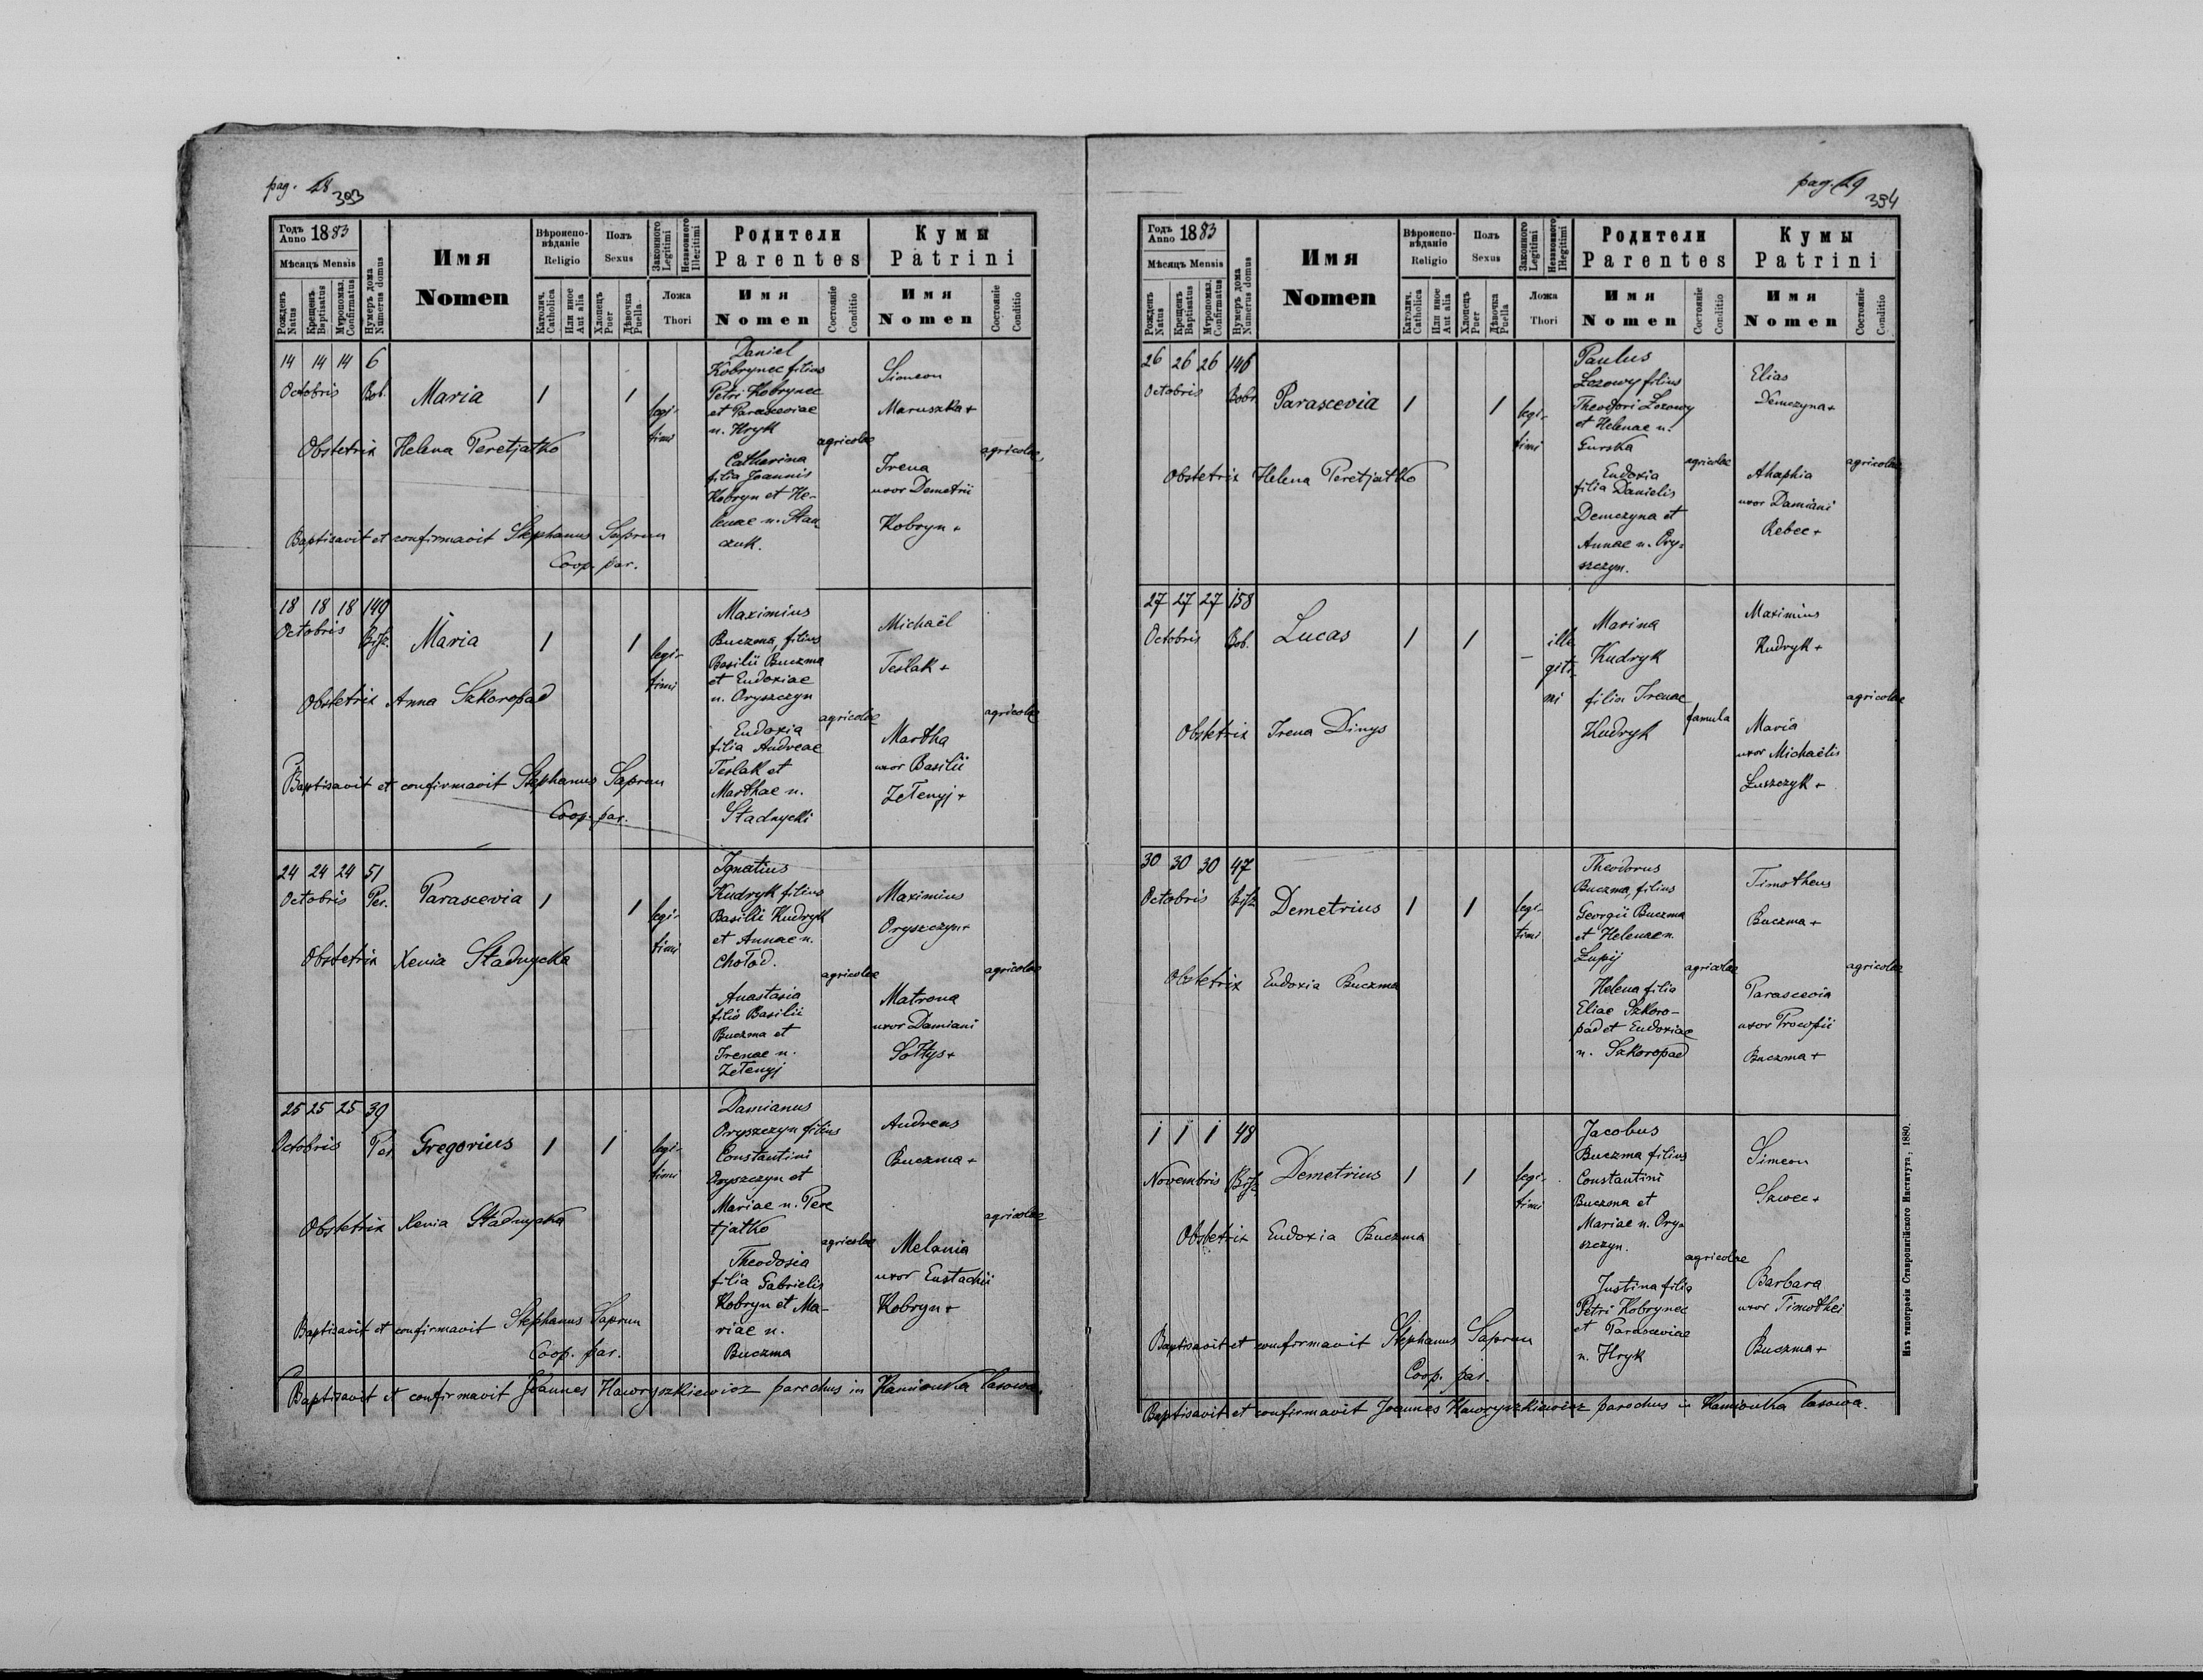 pag. 48
393
Годъ Anno 1883
Мѣсяцъ Mensis
Рожденъ Natus
Крещенъ Baptisatus
Мѵропомаз. Confirmatus
Нумеръ дома Numerus domus
Имя
Nomen
Вѣроиспо-вѣданіе
Religio
Католич. Catholica
Или иное Aut alia
Полъ
Sexus
Хлопецъ Puer
Дѣвочка Puella
Законного Legitimi
Незаконного Illegitimi
Ложа
Thori
Родители
Parentes
Имя
Nomen
Состояніе Conditio
Кумы
Patrini
Имя
Nomen
Состояніе Conditio
14 14 14 6
Octobris Bob.
Maria 1 1
legi-
timi
Obstetrix Helena Peretjatko
Baptisavit et confirmavit Stephanus Saprun
Coop. par.
Daniel
Kobrynec filius
Petri Kobrynec
et Parasceviae
n. Hryk
agricolae
Catharina
filia Joannis
Kobryn et He-
lenae n. Stan
czuk.
Simeon
Maruszka +
agricolae
Irena
uxor Demetrii
Kobryn +
18 18 18 149
Octobris
Maria 1 1
legi-
timi
Obstetrix Anna Szkoropad
Baptisavit et confirmavit Stephanus Saprun
Coop. par.
Maximius
Buczma, filius
Basilii Buczma
et Eudoxiae
n. Oryszczyn
agricolae
Eudoxia
filia Andreae
Teslak et
Marthae n.
Stadnycki
Michaël
Teslak +
agricolae
Martha
uxor Basilii
Zełenyj +
24 24 24 51
Octobris Per.
Parascevia 1 1
legi-
timi
Obstetrix Xenia Stadnycka
Ignatius
Kudryk filius
Basilii Kudryk
et Annae n.
Chołod.
agricolae
Anastasia
filia Basilii
Buczma et
Irenae n.
Zełenyj
Maximius
Oryszczyn +
agricolae
Matrona
uxor Damiani
Sołtys +
25 25 25 39
Octobris Per
Gregorius 1 1
legi-
timi
Obstetrix Xenia Stadnycka
Baptisavit et confirmavit Stephanus Saprun
Coop. par.
Damianus
Oryszczyn filius
Constantini
Oryszczyn et
Mariae n. Pere
tjatko
agricolae
Theodosia
filia Gabrielis
Kobryn et Ma-
riae n.
Buczma
Andreas
Buczma +
agricolae
Melania
uxor Eustachii
Kobryn +
Baptisavit et confirmavit Joannes Hawryszkiewicz parochus in Kamionka lasowa.
pag. 49
394
Годъ Anno 1883
Мѣсяцъ Mensis
Рожденъ Natus
Крещенъ Baptisatus
Мѵропомаз. Confirmatus
Нумеръ дома Numerus domus
Имя
Nomen
Вѣроиспо-вѣданіе
Religio
Католич. Catholica
Или иное Aut alia
Полъ
Sexus
Хлопецъ Puer
Дѣвочка Puella
Законного Legitimi
Незаконного Illegitimi
Ложа
Thori
Родители
Parentes
Имя
Nomen
Состояніе Conditio
Кумы
Patrini
Имя
Nomen
Состояніе Conditio
26 26 26 146
Octobris Bobr.
Parascevia 1 1
legi-
timi
Obstetrix Helena Peretjatko
Paulus
Łozowy filius
Theodori Łozowy
et Helenae n.
Gurska
agricolae
Eudoxia
filia Danielis
Demczyna et
Annae n. Ory-
szczyn.
Elias
Demczyna +
agricolae
Ahaphia
uxor Damiani
Rebec +
27 27 27 158
Octobris Bob.
Lucas 1 1
ille
giti-
mi
Obstetrix Irena Dinys
Marina
Kudryk
filia Irenae
Kudryk
famula
Maximius
Kudryk +
agricolae
Maria
uxor Michaëlis
Łuszczyk +
30 30 30 47
Octobris
Demetrius 1 1
legi-
timi
Obstetrix Eudoxia Buczma
Theodorus
Buczma, filius
Georgii Buczma
et Helenae n.
Łupij
agricolae
Helena filia
Eliae Szkoro-
pad et Eudoxiae
n. Szkoropad
Timotheus
Buczma +
agricolae
Parascevia
uxor Procopii
Buczma +
1 1 1 48
Novembris
Demetrius 1 1
legi-
timi
Obstetrix Eudoxia Buczma
Baptisavit et confirmavit Stephanus Saprun
Coop. par.
Jacobus
Buczma filius
Constantini
Buczma et
Mariae n. Ory-
szczyn.
agricolae
Justina filia
Petri Kobrynec
et Parasceviae
n. Hryk
Simeon
Szwec +
Barbara
uxor Timothei
Buczma +
Baptisavit et confirmavit Joannes Hawryszkiewicz parochus in Kamionka lasowa.
Изъ типографіи Ставропигійского Института, 1880.